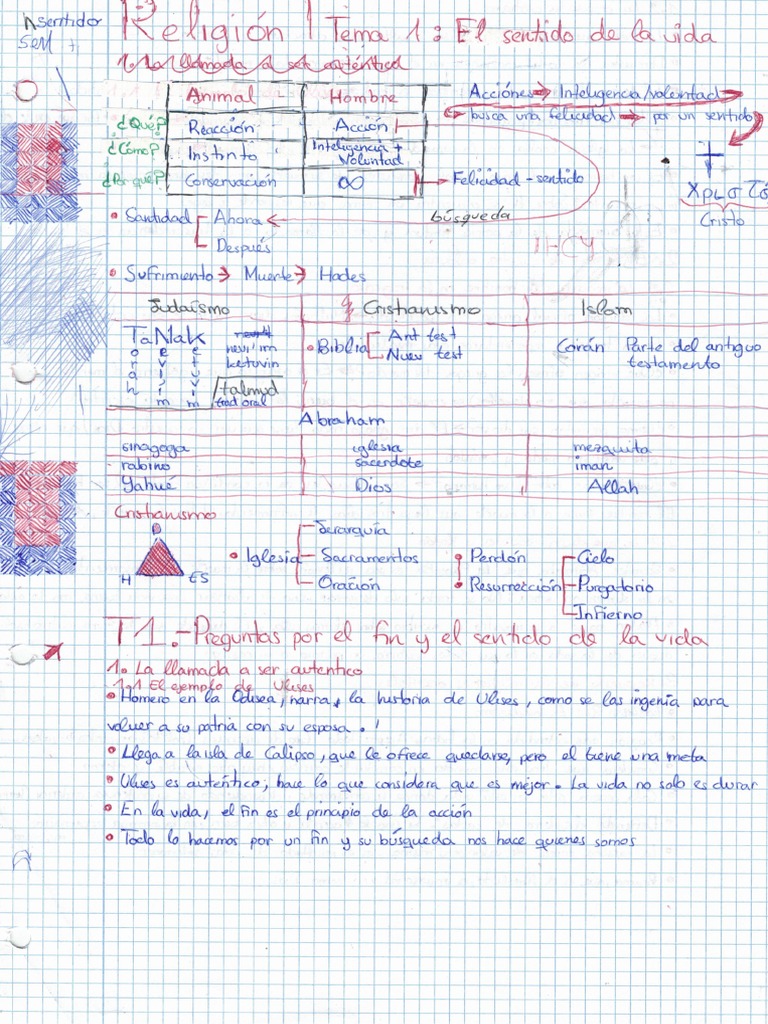 Religión | Tema 1: El sentido de la vida
1. La llamada a ser auténtico
Animal Hombre
¿Qué? Reacción Acción
¿Cómo? Instinto Inteligencia + Voluntad
¿Por qué? Conservación ∞ → Felicidad - sentido
Acciónes → Inteligencia/voluntad
busca una felicidad → por un sentido
Cristo
• Santidad Ahora ← búsqueda
Después
• Sufrimiento → Muerte → Hades
Judaísmo Cristianismo Islam
TaNaK nevi'im • Biblia Ant test Corán Parte del antiguo
ketuvin Nuev test testamento
talmud
trad oral
Abraham
sinagoga iglesia mezquita
rabino sacerdote iman
Yahvé Dios Allah
Cristianismo
H ES
• Iglesia Jerarquía
Sacramentos
Oración
• Perdón
• Resurrección Cielo
Purgatorio
Infierno
T1.-Preguntas por el fin y el sentido de la vida
1. La llamada a ser autentico
1.1 El ejemplo de Ulises
• Homero en la Odisea, narra, la historia de Ulises, como se las ingenia para
volver a su patria con su esposa.
• Llega a la isla de Calipso, que le ofrece quedarse, pero el tiene una meta
• Ulises es auténtico, hace lo que considera que es mejor. La vida no solo es durar
• En la vida, el fin es el principio de la acción
• Todo lo hacemos por un fin y su búsqueda nos hace quienes somos